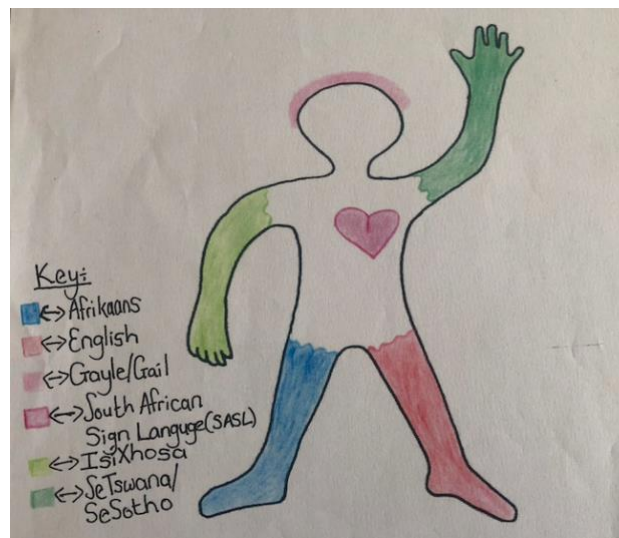 Key:
<-> Afrikaans
<-> English
<-> Gayle/Gail
<-> South African
Sign Languge (SASL)
<-> IsiXhosa
<-> SeTswana/
SeSotho